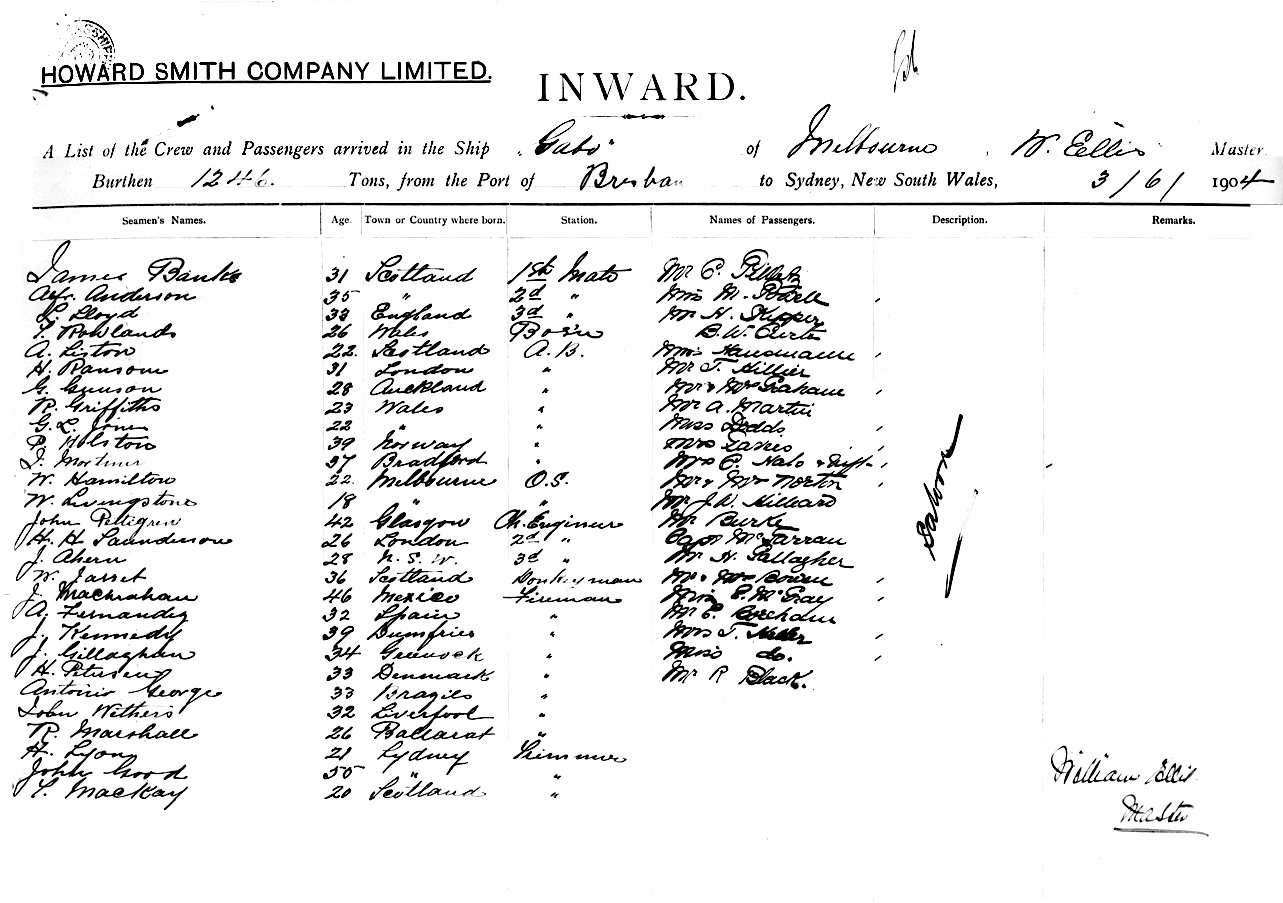 HOWARD SMITH COMPANY LIMITED.
INWARD.
A List of the Crew and Passengers arrived in the Ship "Gabo" of Melbourne, W. Ellis Master
Burthen 1246. Tons, from the Port of Brisban to Sydney, New South Wales, 3/6/1904
Seamen's Names. Age. Town or Country where born. Station. Names of Passengers. Description. Remarks.
James Banks 31 Scotland 1st Mate Mr C.
Alfr. Anderson 35 " 2d " Miss M.
L. Lloyd 33 England 3d " Mr H.
T. Rowlands 26 Wales Bo'sn B. W. Curtis
A. Liston 22. Scotland A.B. Hansmann
H. Ransom 31 London " Mr T. Hillier
G. Gunson 28 Auckland " Mr & Mrs Graham
R. Griffiths 23 Wales " Mr A. Martin
G. L. Jones 22 " " Miss Dodds
P. Holston 39 Norway " Mrs Davies
D. Mortimer 37 Bradford " Mrs C.
W. Hamilton 22. Melbourne O.S. Mr & Mrs Norton
W. Livingstone 18 " " Mr J. W. Hilliard
John Pettigrew 42 Glasgow Ch. Engineer Mr Burke
H. H. Saunderson 26 London 2d " Capt McFarran
J. Ahern 28 N.S.W. 3d " Mr H. Gallagher
W. 36 Scotland Donkeyman Mr & Mrs Bowen
J. 46 Mexico Fireman Miss E. McGray
A. Fernandez 32 Spain " Mr C.
J. Kennedy 39 Dumfries " Mrs T.
J. Gillaghan 34 Greenock " Miss do.
H. Petersen 33 Denmark " Mr R Black.
Antonio George 33 Brazils "
John Withers 32 Liverpool "
R. Marshall 26 Ballarat "
H. Lyon 21 Sydney Trimmer
John Good 50 " "
T. Mackay 20 Scotland "
Saloon
William Ellis
Master